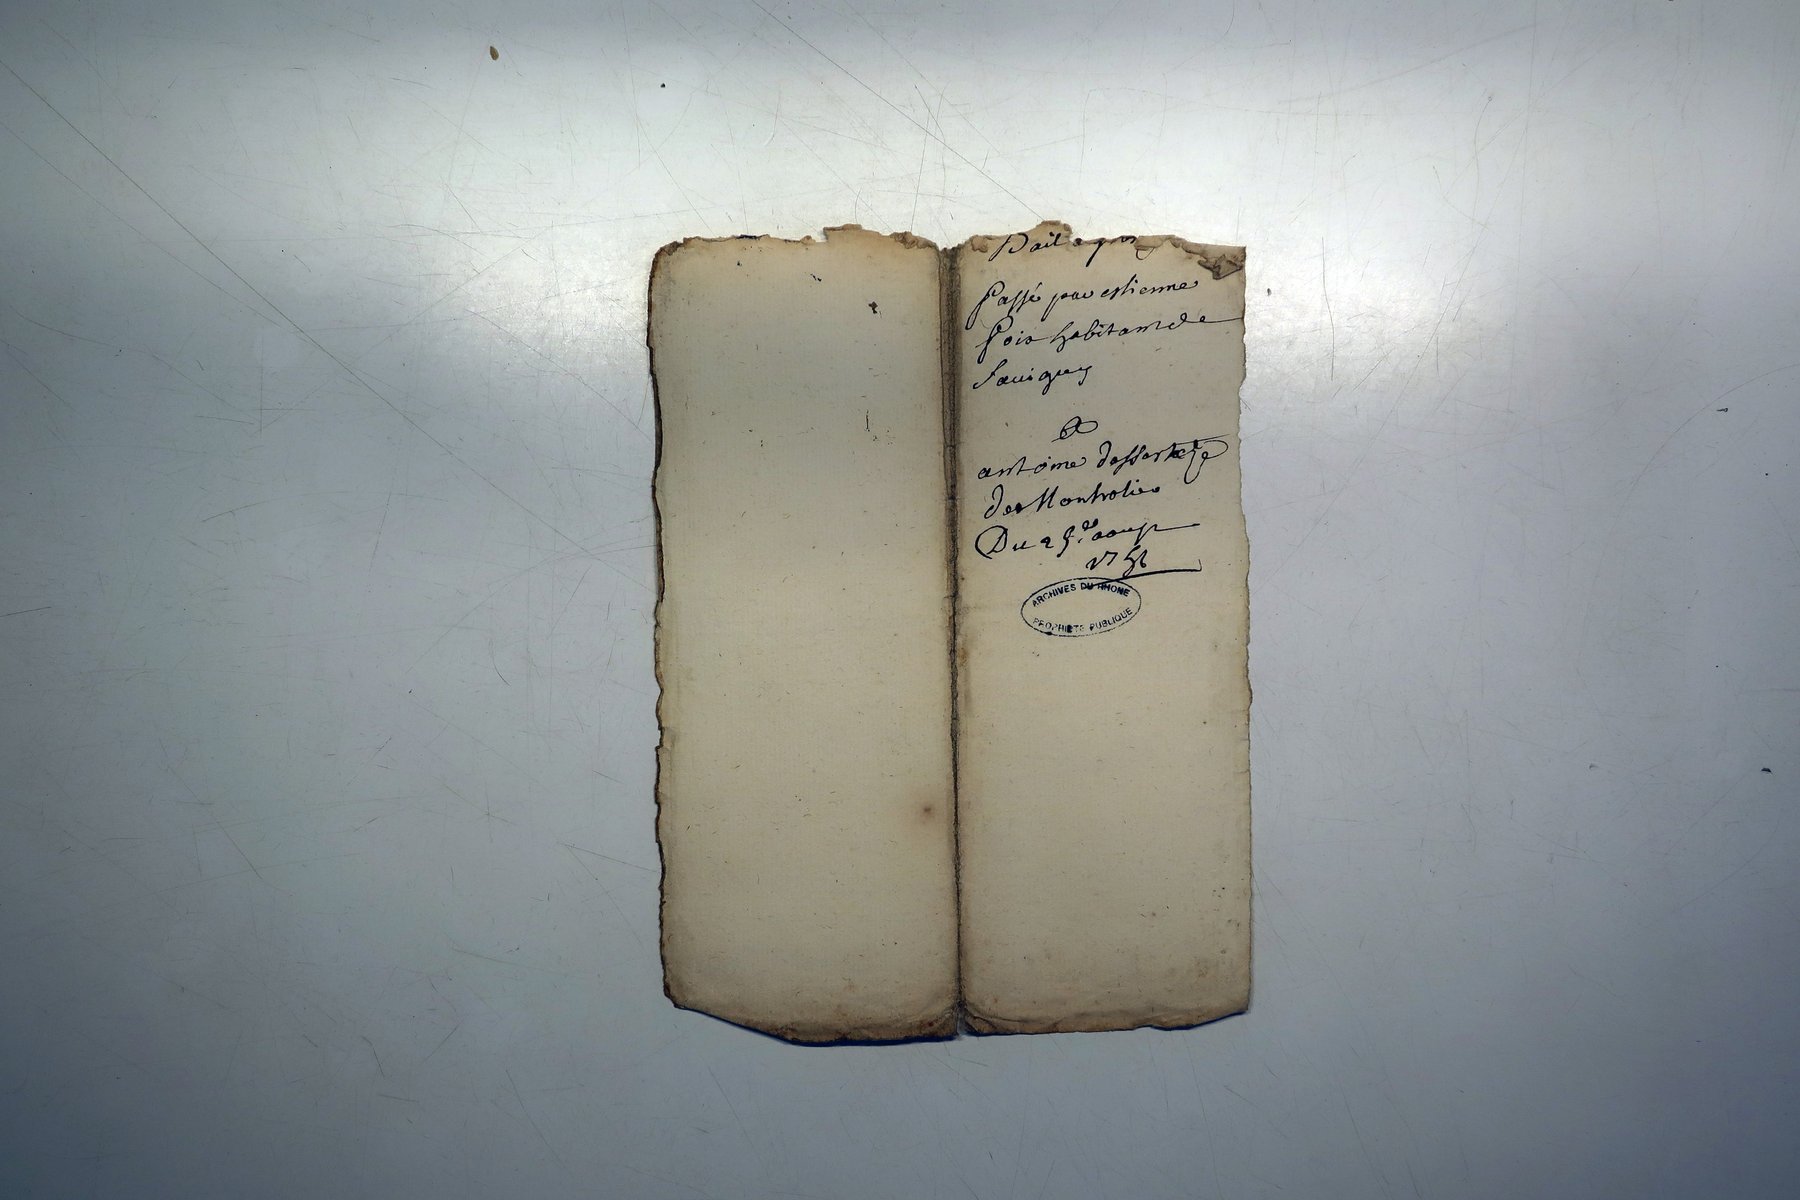 Bail a
Passé par estienne
Poix habitant de
Sauigny
&
antoine dessertete
de Montrotier
Du 25e. aoust
1756
ARCHIVES DU RHONE
PROPRIETE PUBLIQUE